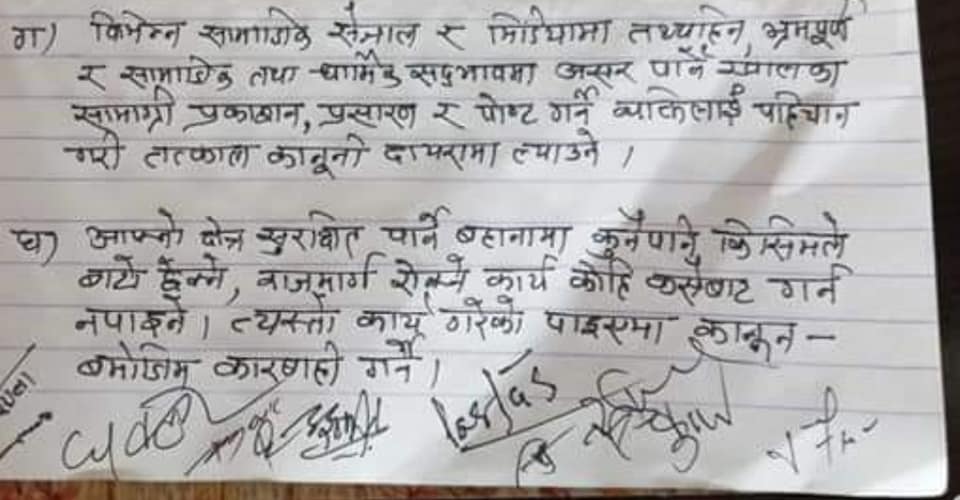 ग) विभिन्न सामाजिक संजाल र मिडियामा तथ्यहिन, भ्रमपूर्ण
र सामाजिक तथा धार्मिक सद्भावमा असर पार्ने खालका
सामाग्री प्रकाशन, प्रसारण र पोष्ट गर्ने व्यक्तिलाई पहिचान
गरी तत्काल कानूनी दायरामा ल्याउने ।
घ) आफ्नो क्षेत्र सुरक्षित पार्ने बहानामा कुनैपनि किसिमले
बाटो छेक्ने, राजमार्ग रोक्ने कार्य कोहि कसैबाट गर्न
नपाइने । त्यस्तो कार्य गरेको पाइएमा कानून –
बमोजिम कारबाही गर्ने ।